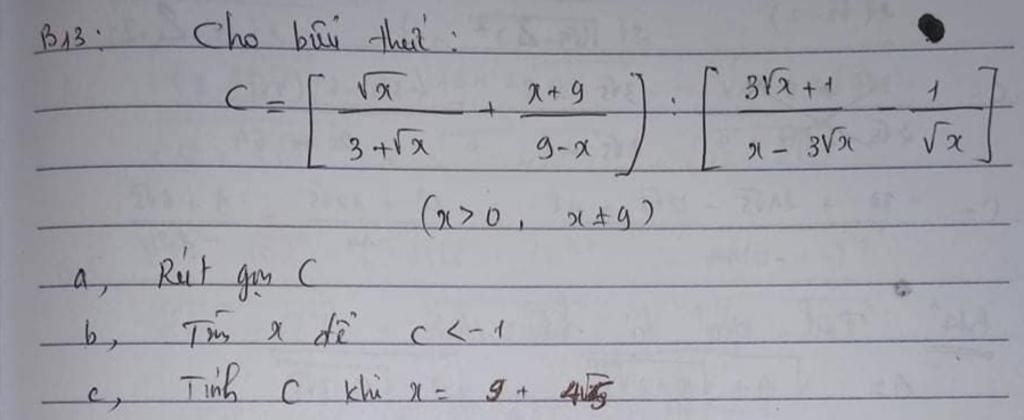 B13: Cho biểu thức:
C = [ √x / (3 + √x) + (x + 9) / (9 - x) ) : [ (3√x + 1) / (x - 3√x) - 1 / √x ]
(x > 0, x ≠ 9)
a, Rút gọn C
b, Tìm x để C < -1
c, Tính C khi x = 9 +